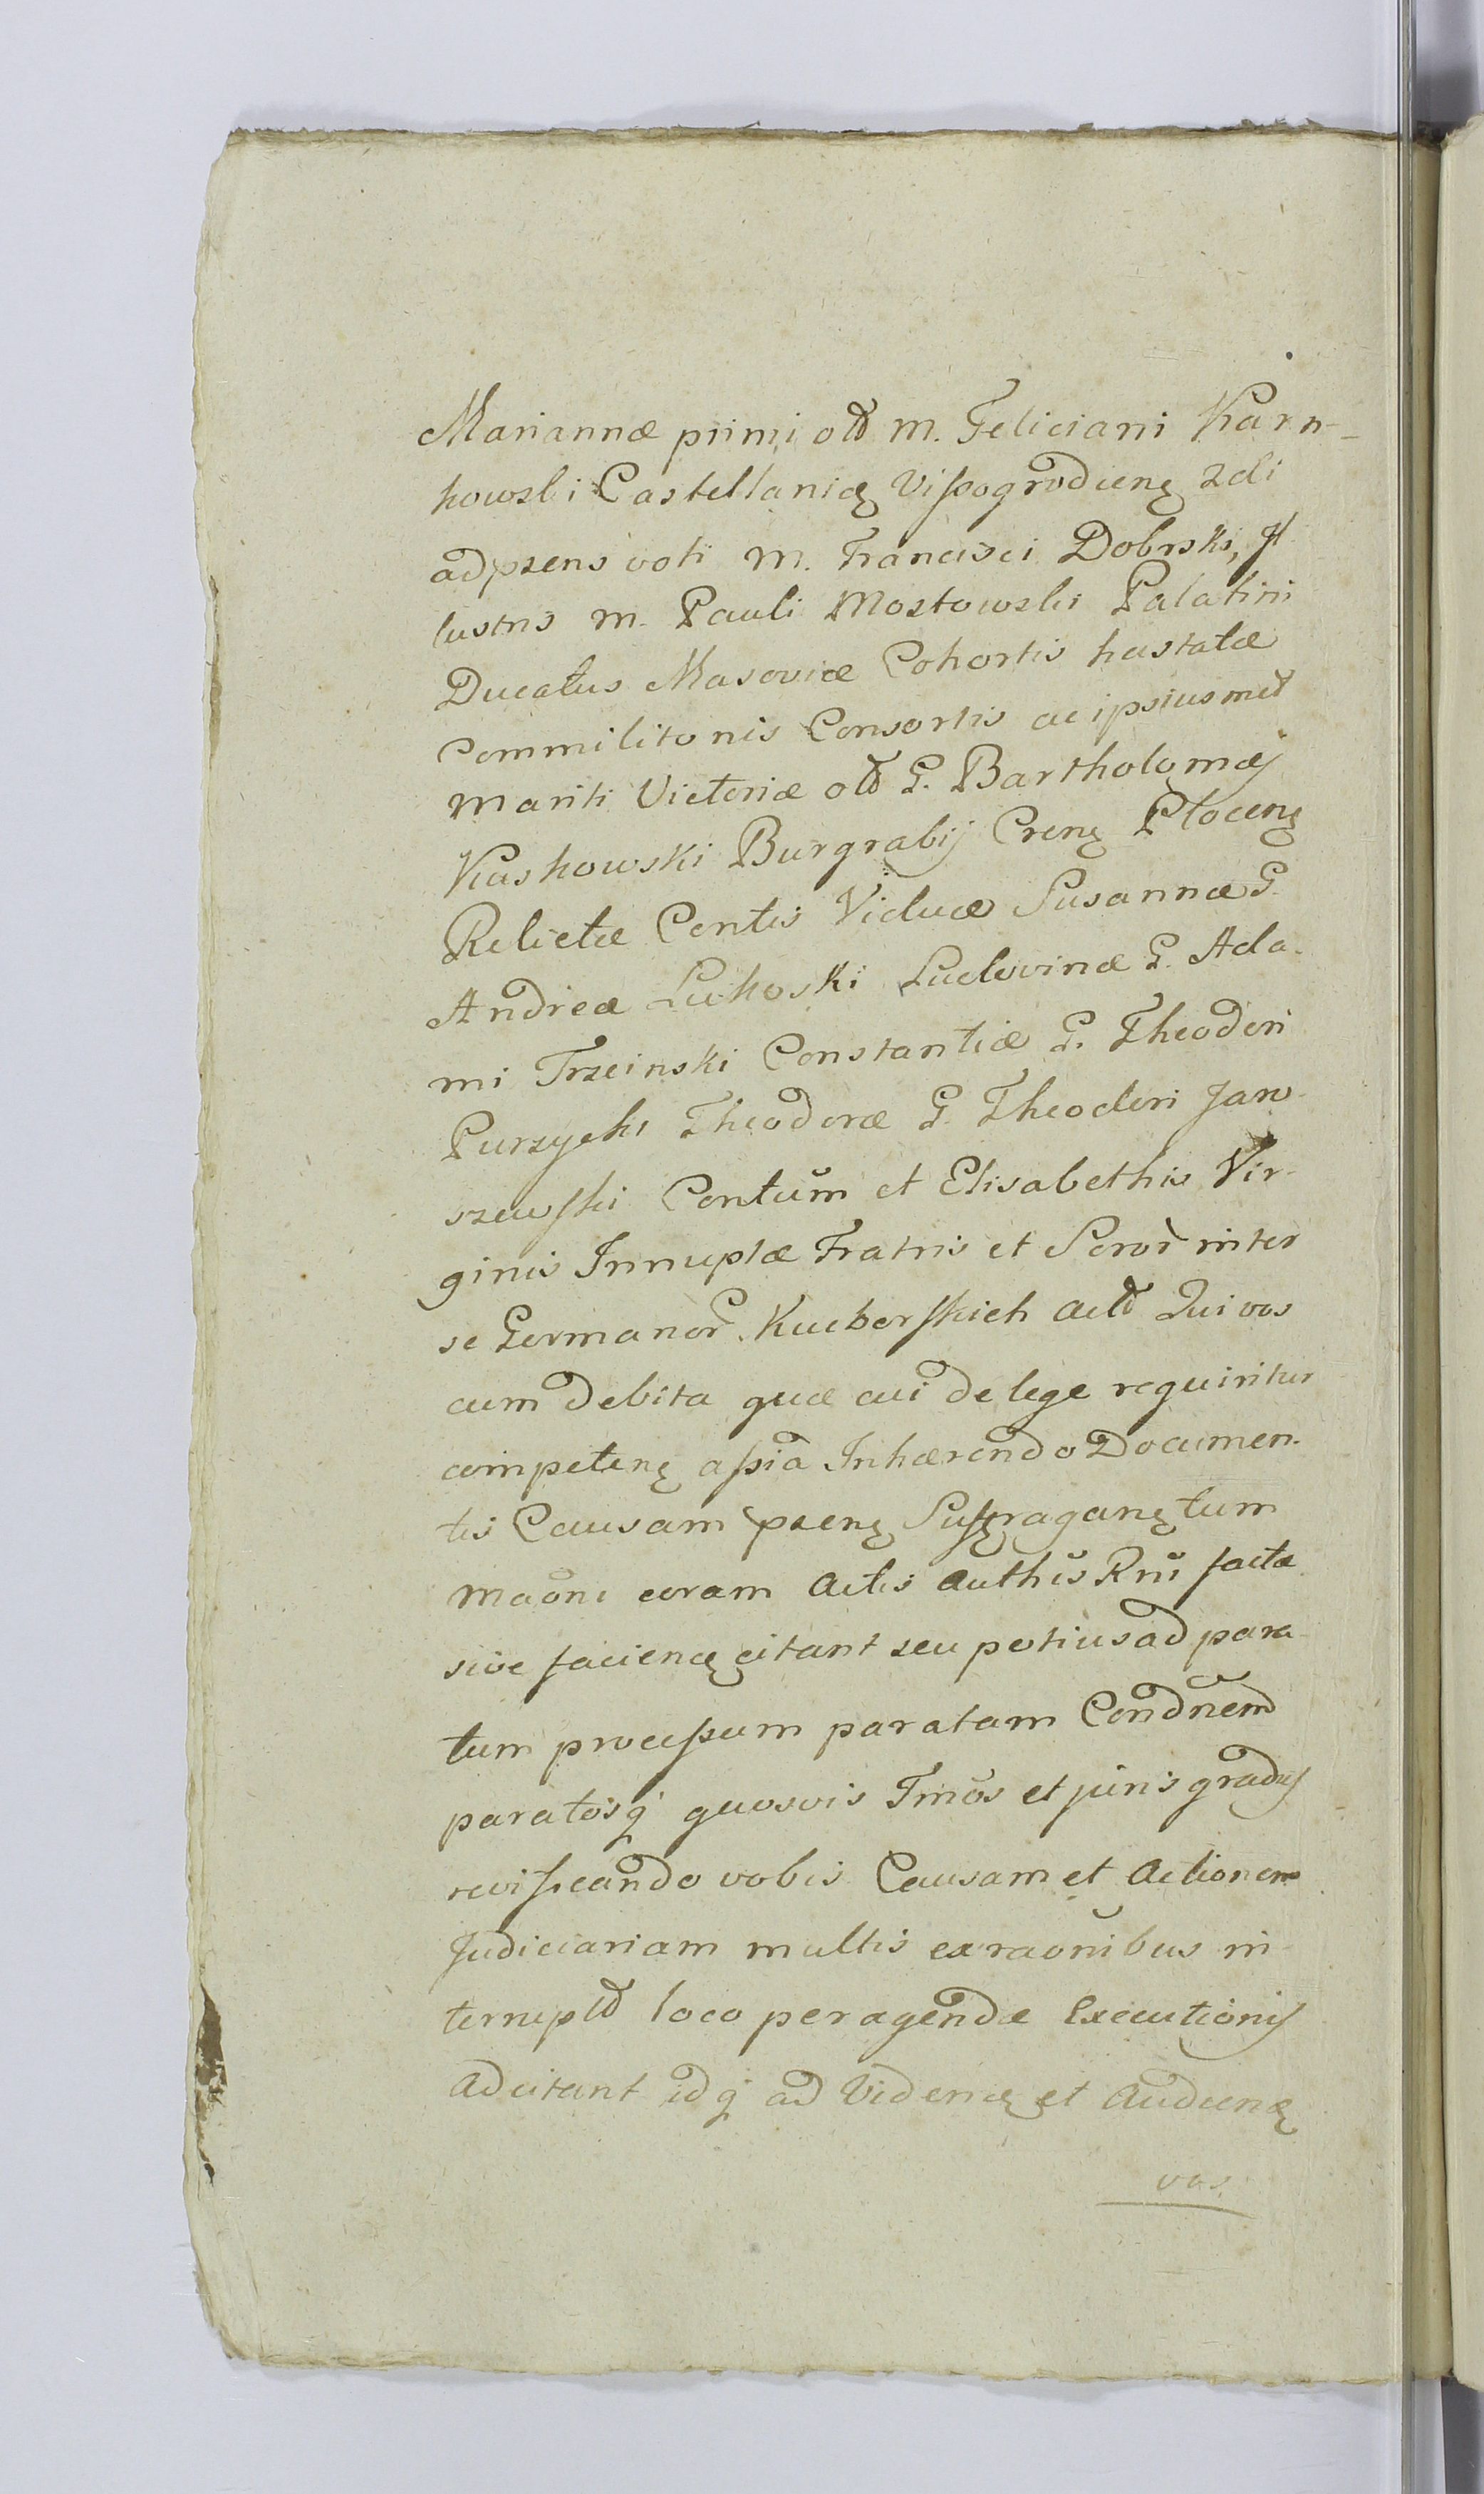 Mariannæ primi olď M. Feliciani Karn-
kowski Castellanię Vissogrodienę 2di
ad przens voti M. Francisci Dobrski, Il
lustris M. Pauli Mostowski Palatini
Ducatus Masoviæ Cohortis hastatæ
Commilitonis Consortis ac ipsiusmeť
Mariti Victoriæ olď G. Bartholomęj
Kaskowski Burgrabij Crenę Plocenę
Relictæ Contis Viduæ Susannæ G.
Andreæ Lukoski Ludovinæ G. Ada-
mi Trzcinski Constantiæ G. Theodori
Purzycki Theodoræ G. Theodori Jaro-
szewski Contum et Elisabethis Vir-
ginis Innuptæ Fratris et Soror inter
se Germanor Kucborskich acť Qui vos
cum debita quæ cui de lege requiritur
competenę assia Inhærendo Documen-
tis Causam przenę Suffraganę tum
Maoni coram Actis Authis Rni factæ
sive facienę citant seu potius ad para-
tum processum paratam Condnem
paratosq quosvis Tmos et juris gradus
revificando vobis Causam et Actionem
Judiciariam multis ex raonibus in-
terrupť loco peragendæ Executionis
adcitant idq ad Videnę et Audienę
vos